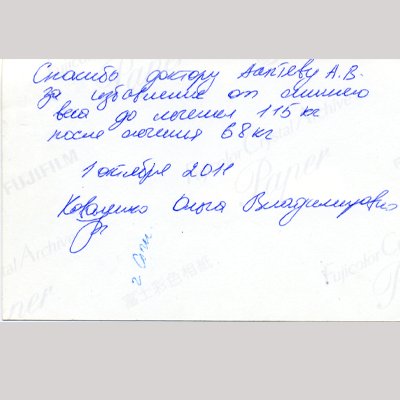 Спасибо доктору Лаптеву А.В.
за избавление от лишнего
веса до лечения 115 кг
после лечения 68 кг
1 октября 2011
Коваленко Ольга Владимировна
г. Сочи
FUJIFILM
Fujicolor Crystal Archive
Paper
富士彩色相紙